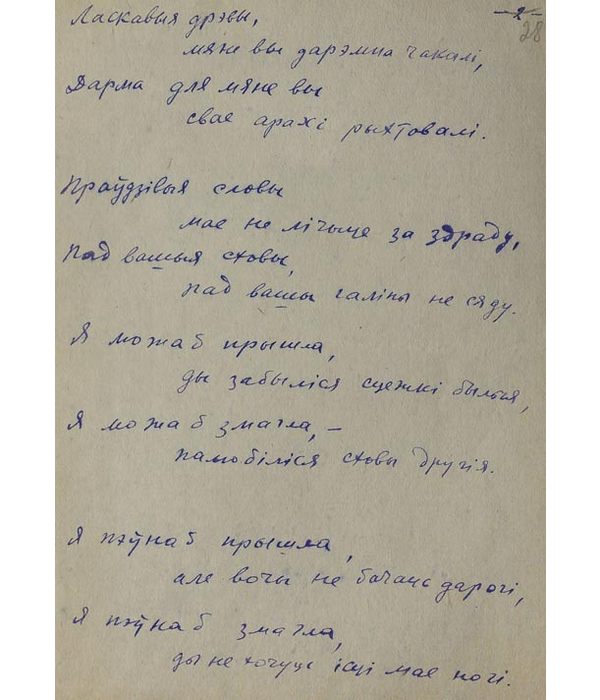 28
Ласкавыя дрэвы,
мяне вы дарэмна чакалі,
Дарма для мяне вы
свае арахі рыхтовалі.
Праўдзівыя словы
мае не лічыце за здраду,
Пад вашыя сховы,
пад вашы галіны не сяду.
Я можа б прышла,
ды забыліся сцежкі былыя,
Я можа б змагла, –
палюбіліся сховы другія.
Я пэўна б прышла,
але вочы не бачаць дарогі,
Я пэўна б змагла,
ды не хочуць ісці мае ногі.